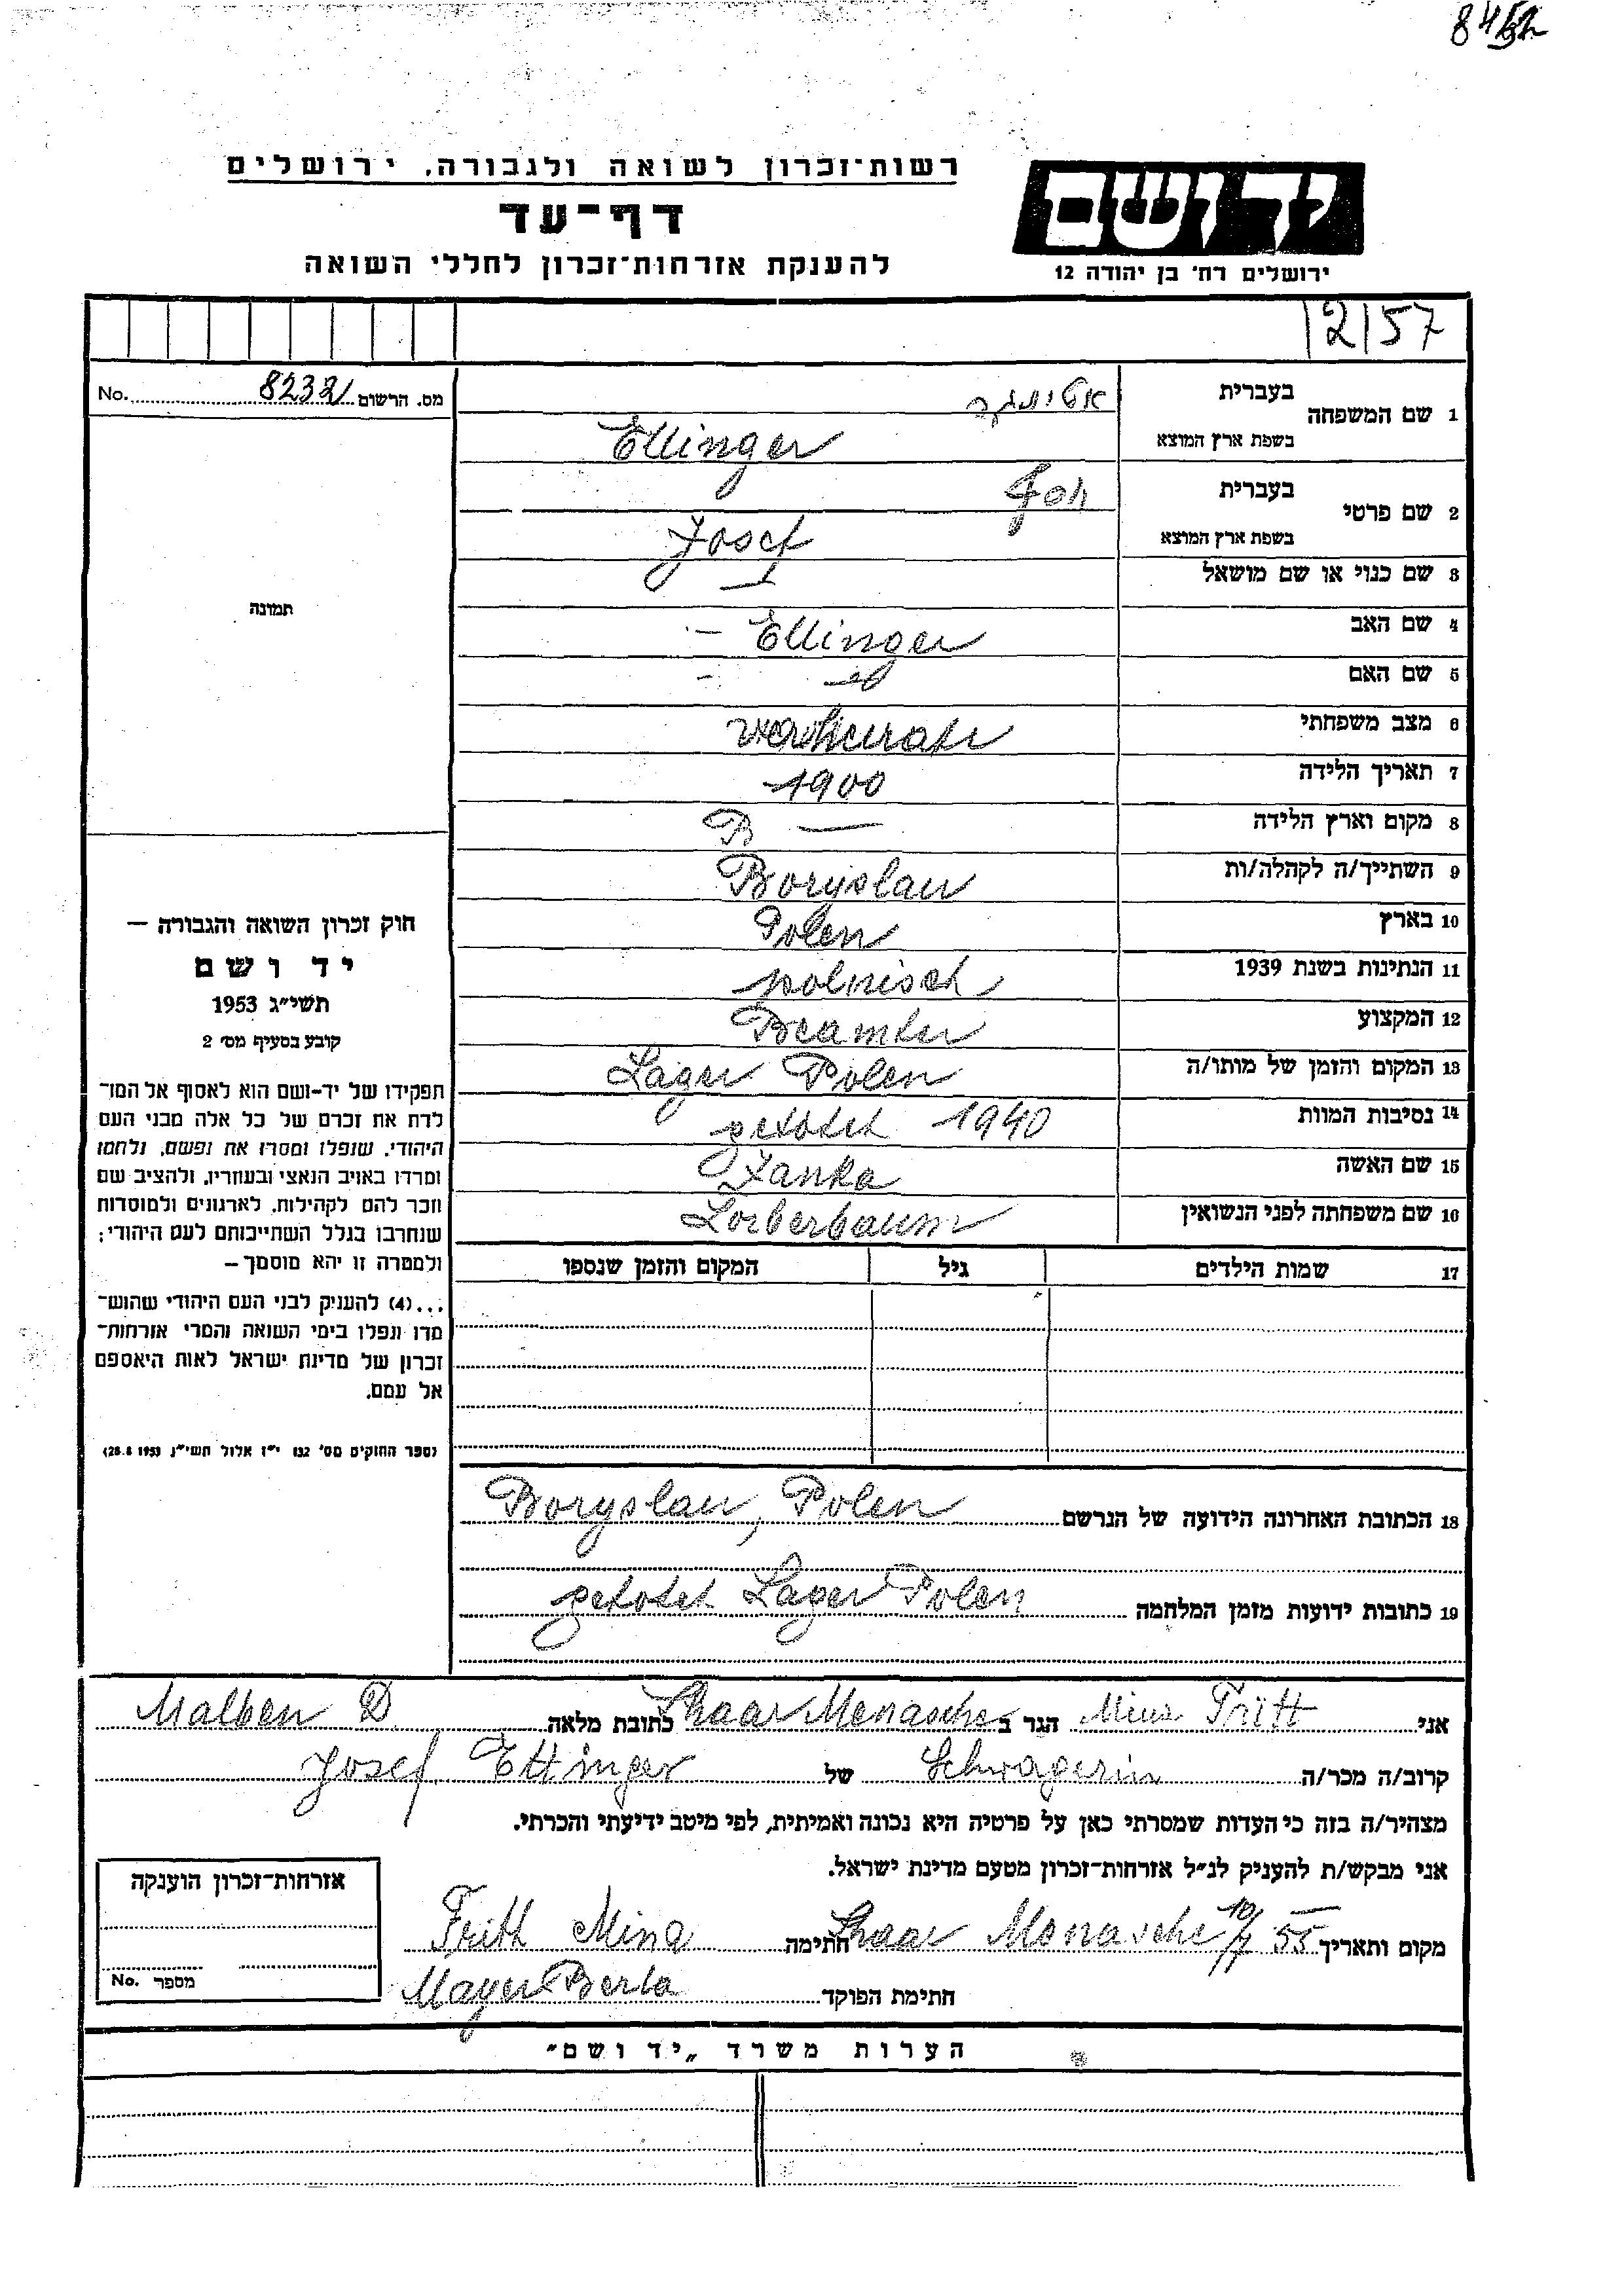 8452
רשות־זכרון לשואה ולגבורה. ירושלים
דף־עד
להענקת אזרחות־זכרון לחללי השואה
יד ושם
ירושלים רח' בן יהודה 12
2|57
מס. הרשום 8232 No.
1 שם המשפחה בעברית אטינגר
בשפת ארץ המוצא Ettinger
2 שם פרטי בעברית יוסף
בשפת ארץ המוצא Josef
3 שם כנוי או שם מושאל —
4 שם האב — Ettinger
5 שם האם —
6 מצב משפחתי verheirate
7 תאריך הלידה 1900
8 מקום וארץ הלידה B —
9 השתייך/ה לקהלה/ות Boryslau
10 בארץ Polen
11 הנתינות בשנת 1939 polnisch
12 המקצוע Beamter
13 המקום והזמן של מותו/ה Lager Polen
14 נסיבות המוות getotet 1940
15 שם האשה Janka
16 שם משפחתה לפני הנשואין Lorberbaum
17 שמות הילדים גיל המקום והזמן שנספו
תמונה
חוק זכרון השואה והגבורה –
יד ושם
תשי״ג 1953
קובע בסעיף מס׳ 2
תפקידו של יד-ושם הוא לאסוף אל המו־
לדת את זכרם של כל אלה מבני העם
היהודי, שנפלו ומסרו את נפשם, נלחמו
ומרדו באויב הנאצי ובעוזריו, ולהציב שם
וזכר להם לקהילות, לארגונים ולמוסדות
שנחרבו בגלל השתייכותם לעם היהודי;
ולמטרה זו יהא מוסמך –
...(4) להעניק לבני העם היהודי שהוש־
מדו ונפלו בימי השואה והמרי אזרחות־
זכרון של מדינת ישראל לאות היאספם
אל עמם.
(ספר החוקים מס׳ 132 י״ז אלול תשי״ג 28.8.1953)
18 הכתובת האחרונה הידועה של הנרשם Boryslau, Polen
19 כתובות ידועות מזמן המלחמה getotet Lager Polen
אני Mina Fritt הגר ב Shaar Menasche כתובת מלאה Malben D.
קרוב/ה מכר/ה Schwagerin של Josef Ettinger
מצהיר/ה בזה כי העדות שמסרתי כאן על פרטיה היא נכונה ואמיתית, לפי מיטב ידיעתי והכרתי.
אני מבקש/ת להעניק לנ״ל אזרחות־זכרון מטעם מדינת ישראל.
מקום ותאריך Shaar Menasche 10/7 55 חתימה Fritt Mina
חתימת הפוקד Mayer Berta
אזרחות־זכרון הוענקה
מספר No.
הערות משרד „יד ושם״